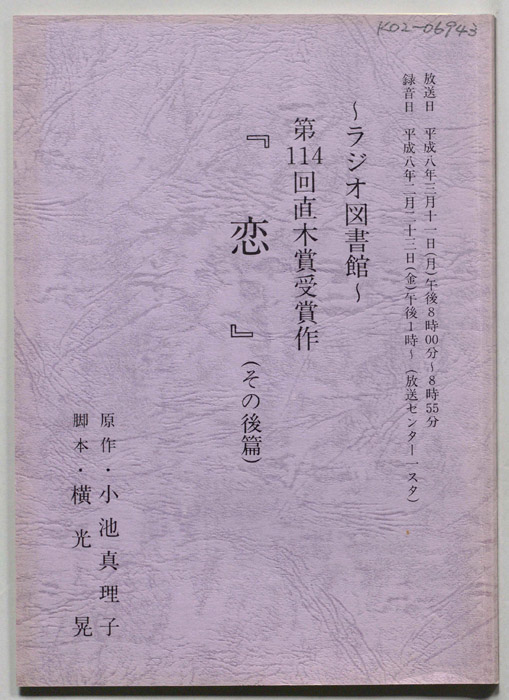 K02-06943
放送日　平成八年三月十一日(月)午後8時00分～8時55分
録音日　平成八年二月二十三日(金)午後1時～（放送センター一スタ）
～ラジオ図書館～
第114回直木賞受賞作
『　恋　』（その後篇）
原作・小池真理子
脚本・横光　晃